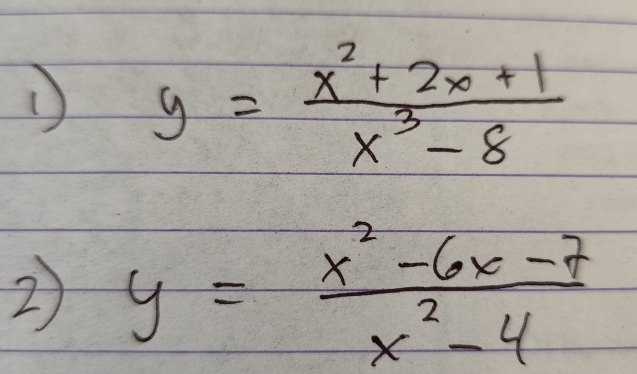 1) y = (x² + 2x + 1) / (x³ - 8)
2) y = (x² - 6x - 7) / (x² - 4)